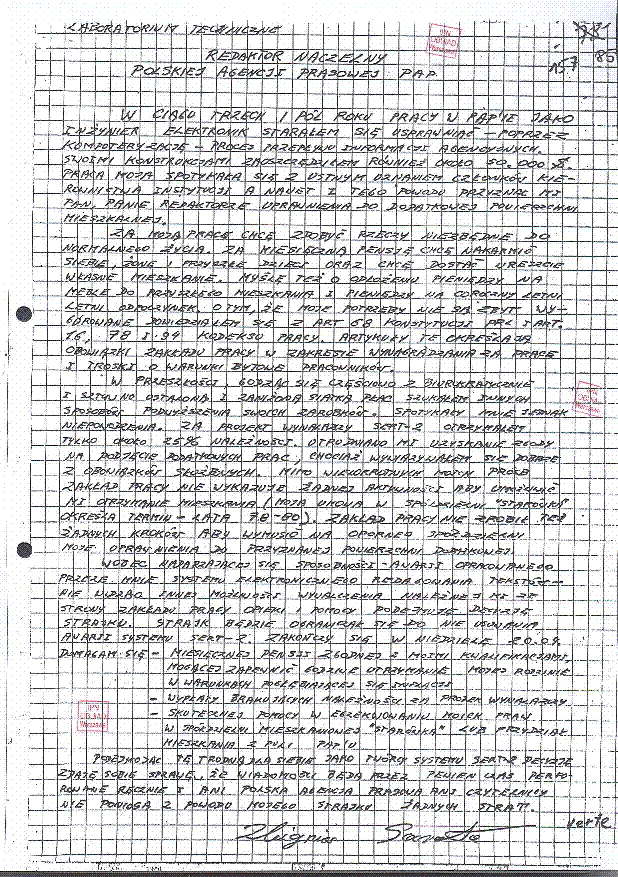 LABORATORIUM TECHNICZNE
IPN
Warszawa
157
85
REDAKTOR NACZELNY
POLSKIEJ AGENCJI PRASOWEJ PAP
W CIĄGU TRZECH I PÓŁ ROKU PRACY W PAP'IE JAKO
INŻYNIER ELEKTRONIK STARAŁEM SIĘ USPRAWNIAĆ – POPRZEZ
KOMPUTERYZACJĘ – PROCES PRZEPŁYWU INFORMACJI AGENCYJNYCH.
SWOIMI KONSTRUKCJAMI ZAOSZCZĘDZIŁEM RÓWNIEŻ OKOŁO 50.000 $
PRACA MOJA SPOTYKAŁA SIĘ Z USTNYM UZNANIEM CZŁONKÓW KIE-
ROWNICTWA INSTYTUCJI A NAWET Z TEGO POWODU PRZYZNAŁ MI
PAN, PANIE REDAKTORZE UPRAWNIENIA DO DODATKOWEJ POWIERZCHNI
MIESZKALNEJ.
ZA MOJĄ PRACĘ CHCĘ ZDOBYĆ RZECZY NIEZBĘDNE DO
NORMALNEGO ŻYCIA. ZA MIESIĘCZNĄ PENSJĘ CHCĘ NAKARMIĆ
SIEBIE, ŻONĘ I PRZYSZŁE DZIECI ORAZ CHCĘ DOSTAĆ WRESZCIE
WŁASNE MIESZKANIE. MYŚLĘ TEŻ O ODŁOŻENIU PIENIĘDZY NA
MEBLE DO PRZYSZŁEGO MIESZKANIA I PIENIĘDZY NA COROCZNY LETNI
LETNI ODPOCZYNEK. O TYM, ŻE MOJE POTRZEBY NIE SĄ ZBYT WY-
GÓROWANE DOWIEDZIAŁEM SIĘ Z ART 68 KONSTYTUCJI PRL I ART.
16, 78 I 94 KODEKSU PRACY. ARTYKUŁY TE OKREŚLAJĄ
OBOWIĄZKI ZAKŁADU PRACY W ZAKRESIE WYNAGRADZANIA ZA PRACĘ
I TROSKI O WARUNKI BYTOWE PRACOWNIKÓW.
W PRZESZŁOŚCI, GODZĄC SIĘ CZĘŚCIOWO Z BIUROKRATYCZNIE
I SZTYWNO USTALONĄ I ZANIŻONĄ SIATKĄ PŁAC SZUKAŁEM INNYCH
SPOSOBÓW PODWYŻSZENIA SWOICH ZAROBKÓW. SPOTYKAŁY MNIE JEDNAK
NIEPOWODZENIA. ZA PROJEKT WYNALAZCZY SERT-2 OTRZYMAŁEM
TYLKO OKOŁO 25% NALEŻNOŚCI. UTRUDNIANO MI UZYSKANIE ZGODY
NA PODJĘCIE DODATKOWYCH PRAC, CHOCIAŻ WYWIĄZYWAŁEM SIĘ DOBRZE
Z OBOWIĄZKÓW SŁUŻBOWYCH. MIMO WIELOKROTNYCH MOICH PRÓŚB
ZAKŁAD PRACY NIE WYKAZUJE ŻADNEJ AKTYWNOŚCI ABY UMOŻLIWIĆ
MI OTRZYMANIE MIESZKANIA (MOJA UMOWA W SPÓŁDZIELNI "STARÓWKA"
OKREŚLA TERMIN – LATA 78-80). ZAKŁAD PRACY NIE ZROBIŁ TEŻ
ŻADNYCH KROKÓW ABY WYMUSIĆ NA OPORNEJ SPÓŁDZIELNI
MOJE UPRAWNIENIA DO PRZYZNANEJ POWIERZCHNI DODATKOWEJ
WOBEC NADARZAJĄCEJ SIĘ SPOSOBNOŚCI – AWARII OPRACOWANEGO
PRZEZE MNIE SYSTEMU ELEKTRONICZNEGO REDAGOWANIA TEKSTÓW –
NIE WIDZĄC INNEJ MOŻLIWOŚCI WYWALCZENIA NALEŻNEJ MI ZE
STRONY ZAKŁADU PRACY OPIEKI I POMOCY PODEJMUJĘ DECYZJĘ
STRAJKU. STRAJK BĘDZIE OGRANICZAŁ SIĘ DO NIE USUWANIA
AWARII SYSTEMU SERT-2. ZAKOŃCZY SIĘ W NIEDZIELĘ 20.09.
DOMAGAM SIĘ – MIESIĘCZNEJ PENSJI ZGODNEJ Z MOIMI KWALIFIKACJAMI,
MOGĄCEJ ZAPEWNIĆ GODZIWE UTRZYMANIE MOJEJ RODZINIE
W WARUNKACH POGŁĘBIAJĄCEJ SIĘ INFLACJI
– WYPŁATY BRAKUJĄCYCH NALEŻNOŚCI ZA PROJEKT WYNALAZCZY
– SKUTECZNEJ POMOCY W EGZEKWOWANIU MOICH PRAW
W SPÓŁDZIELNI MIESZKANIOWEJ "STARÓWKA" LUB PRZYDZIAŁ
MIESZKANIA Z PULI PAP'U
PODEJMUJĄC TĘ TRUDNĄ DLA SIEBIE JAKO TWÓRCY SYSTEMU SERT-2 DECYZJĘ
ZDAJĘ SOBIE SPRAWĘ, ŻE WIADOMOŚCI BĘDĄ PRZEZ PEWIEN CZAS PERFO-
ROWANE RĘCZNIE I ANI POLSKA AGENCJA PRASOWA ANI CZYTELNICY
NIE PONIOSĄ Z POWODU MOJEGO STRAJKU ŻADNYCH STRAT.
Zbigniew
verte